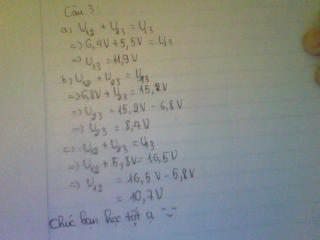 Câu 3:
a) U12 + U23 = U13
=> 6,4V + 5,5V = U13
=> U13 = 11,9V
b) U12 + U23 = U13
=> 6,8V + U23 = 15,2V
=> U23 = 15,2V - 6,8V
=> U23 = 8,4V
c) U12 + U23 = U13
=> U12 + 5,8V = 16,5V
=> U12 = 16,5V - 5,8V
= 10,7V
Chúc bạn học tốt ạ